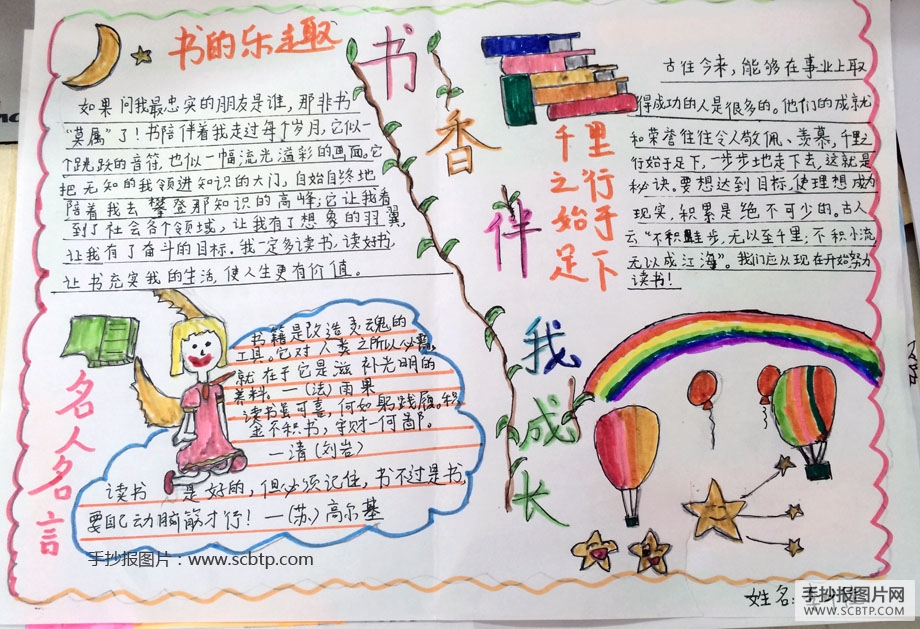 书的乐趣
如果问我最忠实的朋友是谁，那非书
“莫属”了！书陪伴着我走过每个岁月，它似一
个跳跃的音符，也似一幅流光溢彩的画面。它
把无知的我领进知识的大门，自始自终地
陪着我去攀登那知识的高峰；它让我看
到了社会各个领域，让我有了想象的羽翼，
让我有了奋斗的目标。我一定多读书，读好书，
让书充实我的生活，使人生更有价值。
书香伴我成长
千里之行
始于足下
古往今来，能够在事业上取
得成功的人是很多的。他们的成就
和荣誉往往令人敬佩、羡慕，千里之
行始于足下，一步步地走下去，这就是
秘诀。要想达到目标，使理想成为
现实，积累是绝不可少的。古人
云“不积跬步，无以至千里；不积小流
无以成江海”。我们应从现在开始努力
读书！
名人名言
书籍是改造灵魂的
工具。它对人类之所以
就在于它是滋补光明的
养料。—（法）雨果
读书虽可喜，何如躬践履。积
金不积书，守财一何鄙。
—清（刘岩）
读书是好的，但必须记住，书不过是书，
要自己动脑筋才行！—（苏）高尔基
手抄报图片：www.scbtp.com
姓名：
手抄报图片网
WWW.SCBTP.COM